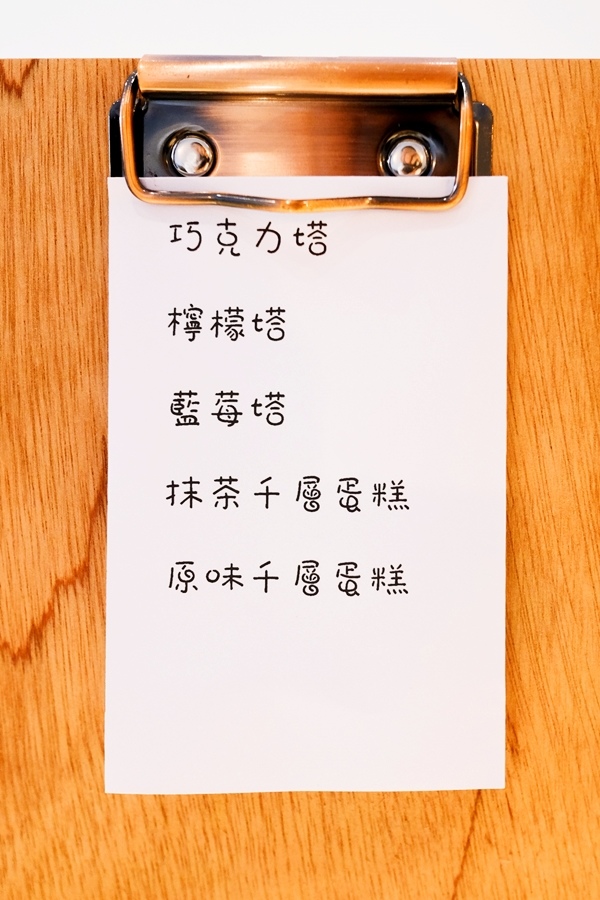 巧克力塔
檸檬塔
藍莓塔
抹茶千層蛋糕
原味千層蛋糕